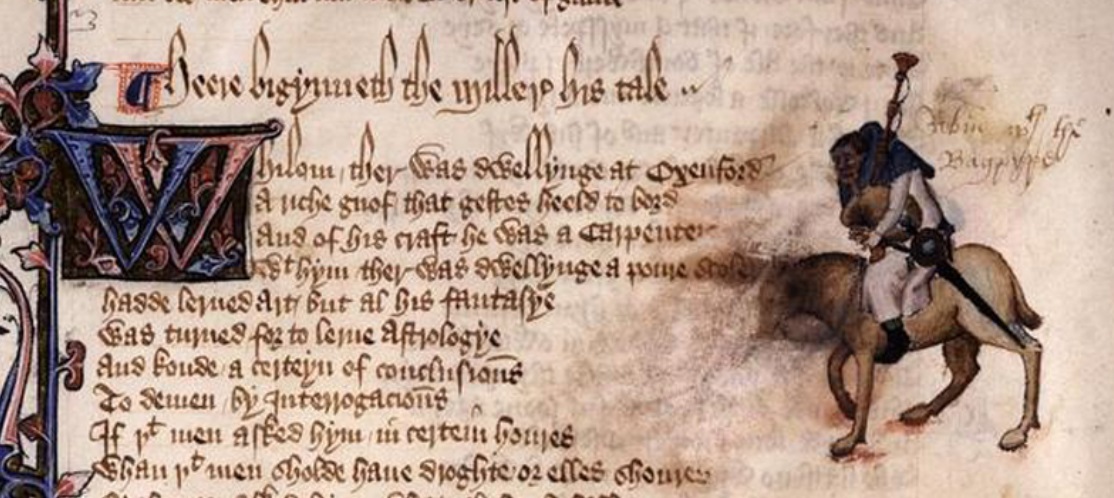 Heere bigynneth the Millere his tale
Whilom ther was dwellynge at Oxenford
A riche gnof that gestes heeld to bord
And of his craft he was a Carpenter
Wt hym ther was dwellynge a poure scoler
hadde lerned art but al his fantasye
Was turned for to lerne Astrologye
And koude a certeyn of conclusions
To demen by Interrogacions
If þt men asked hym in certein houres
Whan þt men sholde haue droghte or elles shoures
Robin wth the
Bagpype